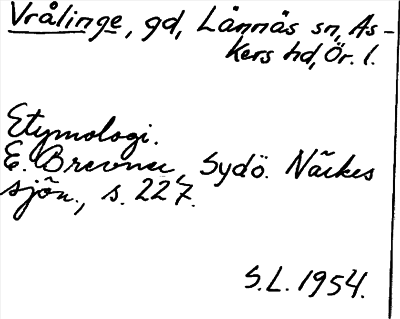 Vrålinge, gd, Lännäs sn, As-
kers hd, Ör. l.
Etymologi.
E. Brevner, Sydö. Närkes
sjön., s. 227.
S.L. 1954.